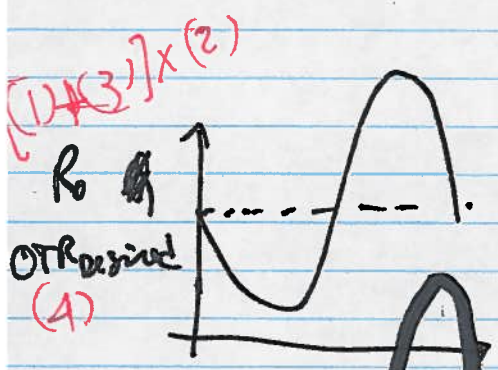 [(1)+(3)] x (2)
R₀
OTR Desired
(4)